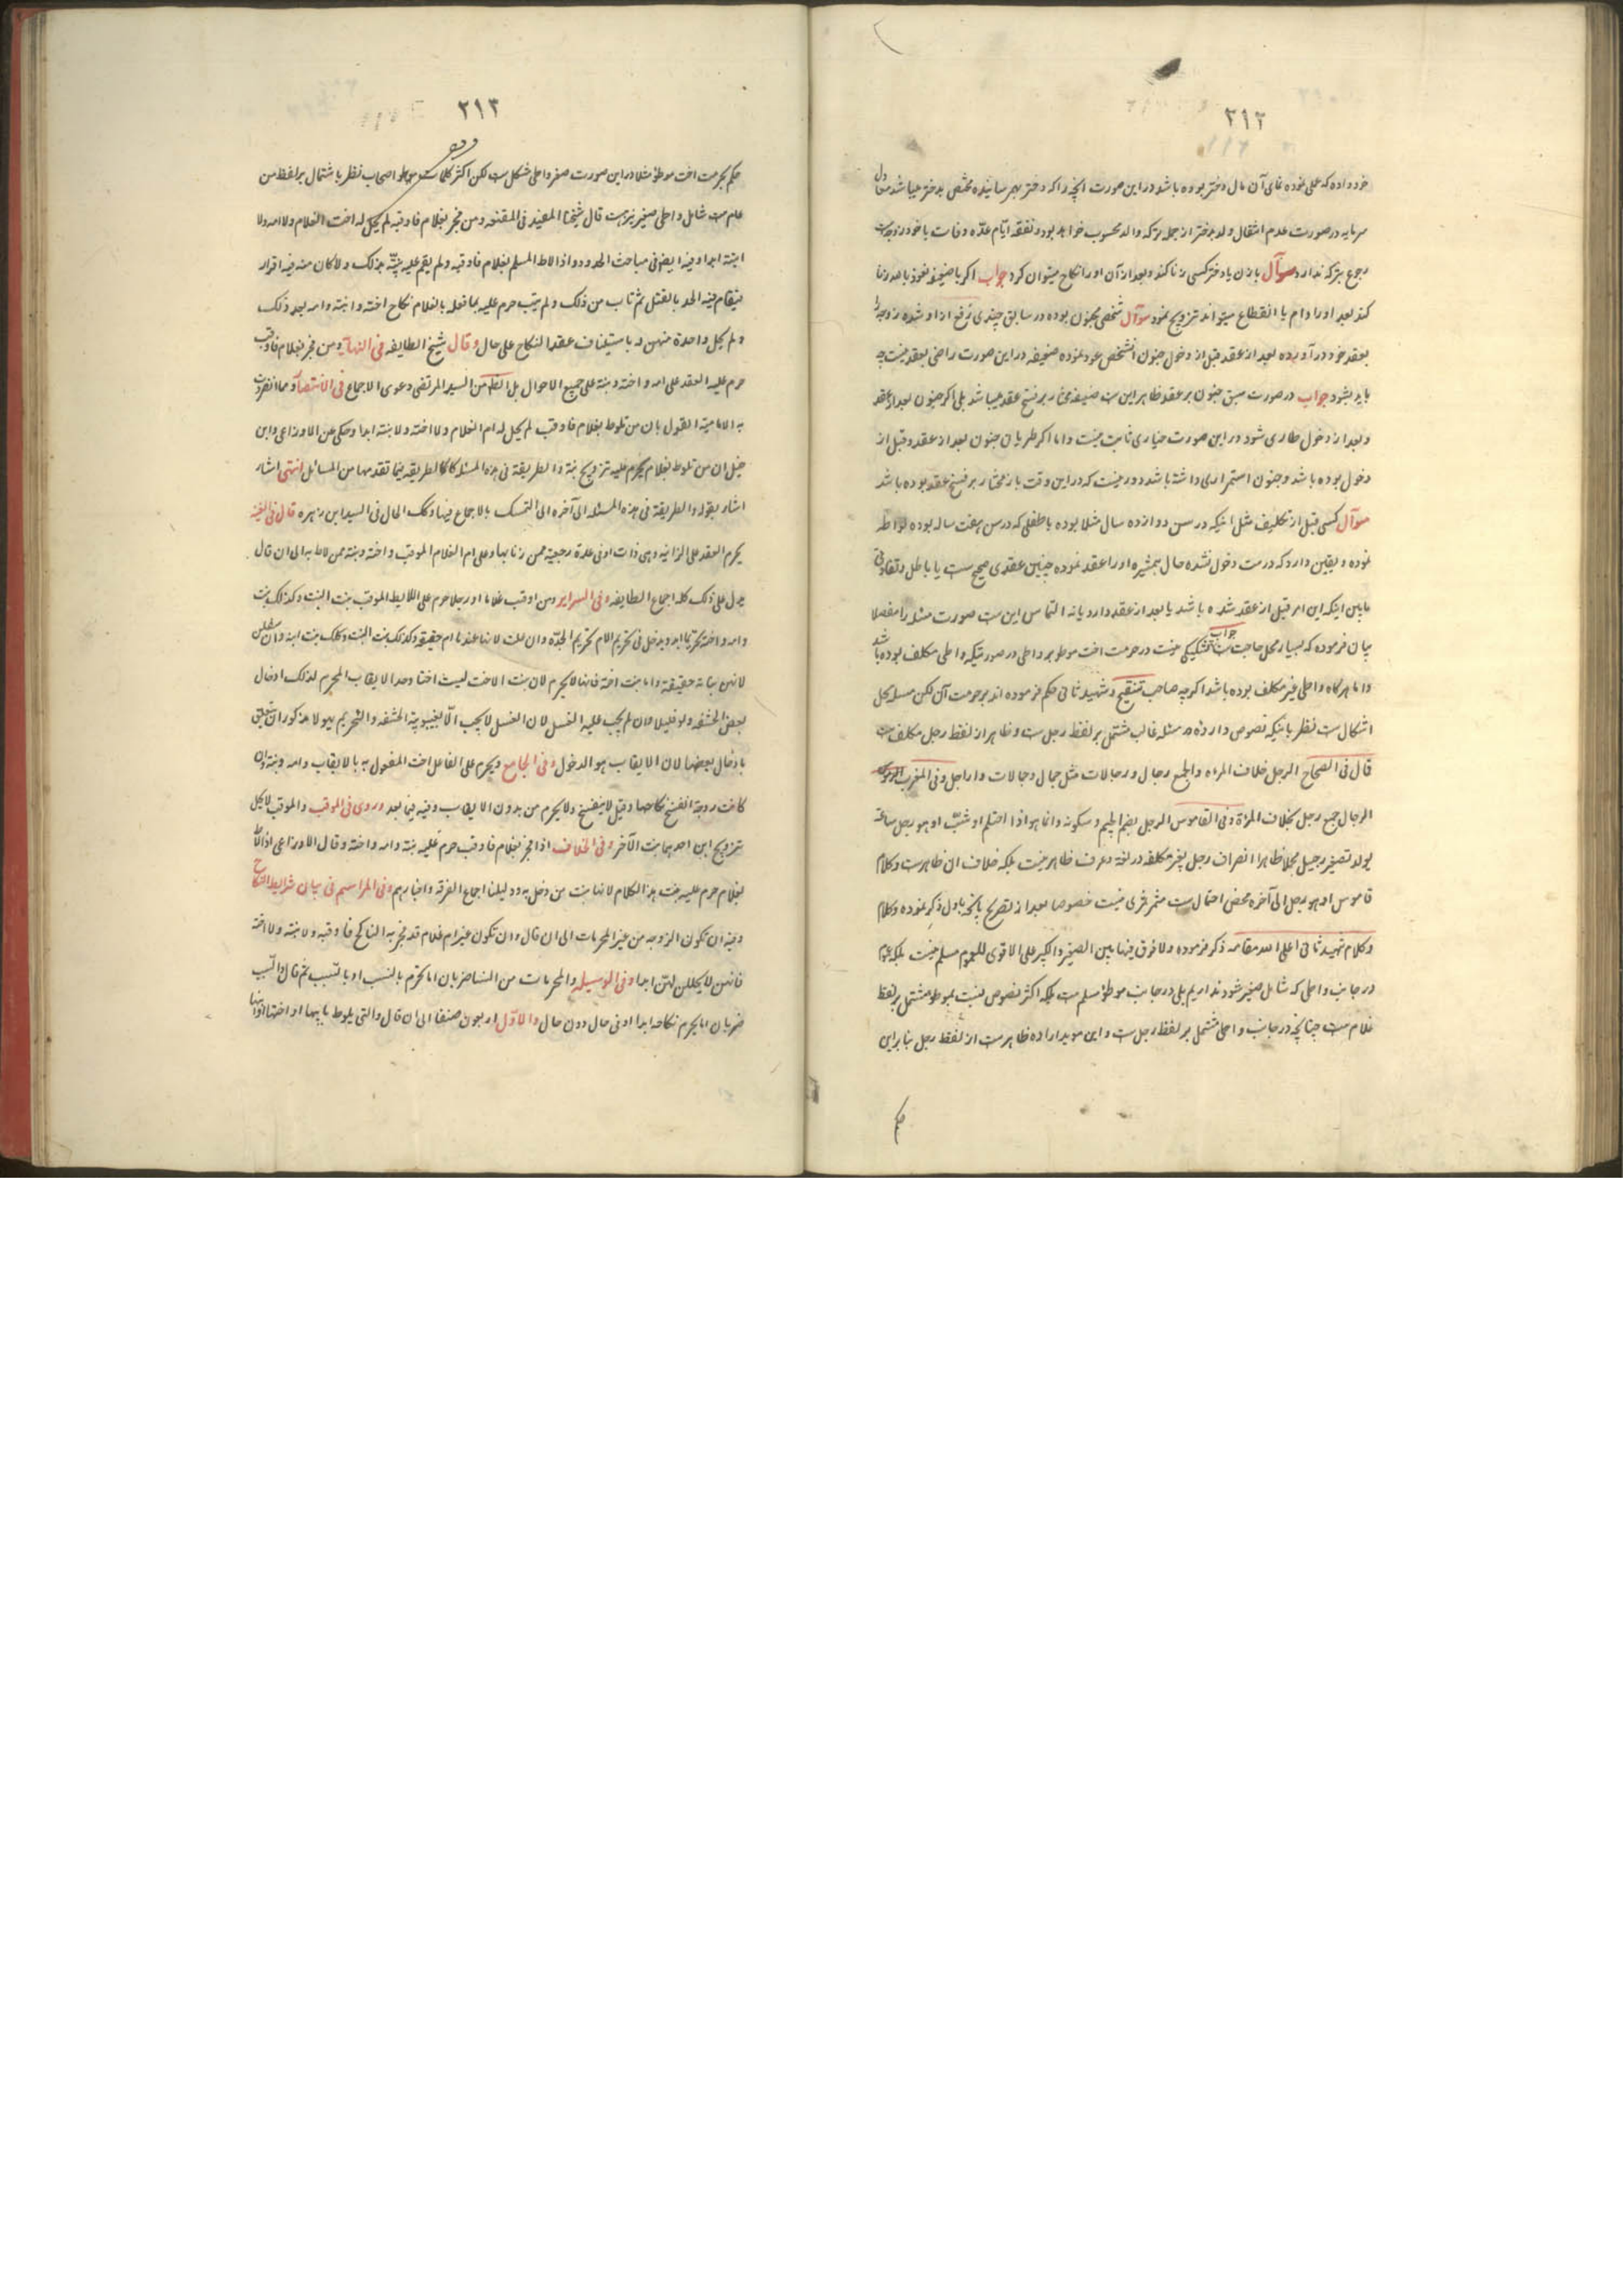 ۲۱۲
خود داده که علی نموده نمای آن مال دختر بوده باشد در این صورت آنچه را که دختر بهم رسانیده مختص بدختر میباشد
سرمایه در صورت عدم انتقال ولد بدختر از جمله ترکه والد محسوب خواهد بود و نفقه ایام عده وفات با خود زوجه است
رجوع بترکه ندارد سوآل با زن یا دختر کسی زنا کند و بعد از آن او را نکاح میتوان کرد جواب اگر با ضعیفه نعوذ بالله زنا
کند بعد او را دام یا انقطاع میتواند تزویج نمود سوآل شخصی مجنون بوده در سابق چندی رفع از او شده زوجه
بعقد خود در آورده بعد از عقد قبل از دخول جنون آنشخص عود نموده ضعیفه در این صورت راضی بعقد نیست چه
باید بشود جواب در صورت سبق جنون بر عقد ظاهر این است ضعیفه مختار بر فسخ عقد میباشد بلی اگر جنون بعد از عقد
و بعد از دخول طاری شود در این صورت خیاری ثابت نیست و اما اگر طریان جنون بعد از عقد و قبل از
دخول بوده باشد و جنون استمراری داشته باشد دور نیست که در این وقت باز مختار بر فسخ عقد بوده باشد
سوآل کسی قبل از تکلیف مثل اینکه در سن دوازده سال مثلا بوده با طفلی که در سن هفت ساله بوده لواطه
نموده و یقین دارد که درست دخول نشده حال همشیره او را عقد نموده چنین عقدی صحیح است یا باطل و تفاوتی
مابین اینکه این امر قبل از عقد شده باشد یا بعد از عقد دارد یا نه التماس این است صورت مسئله را مفصلا
بیان فرموده که بسیار محل حاجت است جواب تشکیکی نیست در حرمت اخت موطوء بر واطی در صورتیکه واطی مکلف بوده باشد
و اما هرگاه واطی غیر مکلف بوده باشد اگرچه صاحب تنقیح و شهید ثانی حکم فرموده اند بر حرمت آن لکن مسئله محل
اشکال است نظر باینکه نصوص وارده در مسئله غالب مشتمل بر لفظ رجل است و ظاهر از لفظ رجل مکلف است
قال فی الصحاح الرجل خلاف المراه والجمع رجال و رجالات مثل جمال و جمالات و اراجل و فی المغرب
الرجال جمع رجل خلاف المرأة و فی القاموس الرجل بضم الجیم و سکونه و انما هو اذا احتلم او شبّ او هو رجل ساعة
یولد تصغیر رجیل مجملا ظاهرا انصراف رجل بغیر مکلف در لغة و عرف ظاهر نیست بلکه خلاف آن ظاهر است و کلام
قاموس او هو رجل الی آخره محض احتمال است مثمر ثمری نیست خصوصا بعد از تصریح بآنچه باول ذکر نموده و کلام
و کلام شهید ثانی اعلی الله مقامه ذکر فرموده ولا فرق فیها بین الصغیر والکبیر علی الاقوی للعموم مسلم نیست بلکه عموم
در جانب واطی که شامل صغیر شود نداریم بلی در جانب موطوء مسلم است بلکه اکثر نصوص نسبت بموطوء مشتمل بر لفظ
غلام است چنانچه در جانب واطی مشتمل بر لفظ رجل است و این موید اراده ظاهر است از لفظ رجل بنا بر این
حکم
۲۱۳
حکم بحرمت اخت موطوء مثلا در این صورت صغر واطی مشکل است لکن اکثر کلمات اصحاب نظر باشتمال بر لفظ من
عام است شامل واطی صغیر نیز هست قال شیخنا المفید فی المقنعه و من فجر بغلام فاوقبه لم یحل له اخت الغلام ولا امه ولا
ابنته ابدا و فیه ایضا فی مباحث الحدود و اذا لاط المسلم بغلام فاوقبه ولم یقم علیه بیّنة بذلک ولا کان منه فیه اقرار
فیقام فیه الحد بالقتل ثم تاب من ذلک ولم یتب حرم علیه بما فعله بالغلام نکاح اخته و ابنته و امه بعد ذلک
ولم یحل واحدة منهن له باستیناف عقد النکاح علی حال و قال شیخ الطایفه فی النهایة و من فجر بغلام فاوقب
حرم علیه العقد علی امه و اخته و بنته علی جمیع الاحوال بل الظاهر من السید المرتضی دعوی الاجماع فی الانتصار و مما انفردت
به الامامیة القول بان من تلوط بغلام فاوقب لم یحل له ام الغلام ولا اخته ولا بنته ابدا و حکی عن الاوزاعی و ابن
حنبل ان من تلوط بغلام یحرم علیه تزویج بنته والطریقة فی هذه المسئلة کالطریقه فیما تقدمها من المسائل انتهی اشار
اشار بقوله والطریقة فی هذه المسئله الی آخره الی التمسک بالاجماع فیها و کک الحال فی السید ابن زهره قال فی الغنیه
یحرم العقد علی الزانیه و هی ذات او فی عدة رجعیة ممن زنا بها و علی ام الغلام الموقب و اخته و بنته ممن لاط به الی ان قال
یدل علی ذلک کله اجماع الطایفه و فی السرایر و من اوقب غلاما او رجلا حرم علی اللایط الموقب بنت البنت و کذلک بنت
و امه و اخته تحریما ابدا و یدخل فی تحریم الام تحریم الجدّه و ان علت لانها عندنا ام حقیقة و کذلک بنت البنت و کذلک بنت ابنه و ان سفلن
لانهن بناته حقیقة و اما بنت اخته فانها لا یحرم لان بنت الاخت لیست اختا و حد الایقاب المحرم لذلک ادخال
بعض الحشفه ولو قلیلا و ان لم یجب علیه الغسل لان الغسل لا یجب الّا بغیبوبة الحشفه والتحریم
بادخال بعضها لان الایقاب هو الدخول و فی الجامع و یحرم علی الفاعل اخت المفعول به بالایقاب و امه و بنته و ان
کانت زوجة انفسخ نکاحها و قیل لا ینفسخ ولا یحرم من بدون الایقاب و فیه فیما بعد و روی فی الموقب والموقب لا یحل
تزویج ابن احدهما بنت الآخر و فی الخلاف اذا فجر بغلام فاوقب حرم علیه بنته و امه و اخته و قال الاوزاعی اذا لاط
بغلام حرم علیه بنت هذا الکلام لانها بنت من دخل به و دلیلنا اجماع الفرقه و اخبارهم و فی المراسم فی بیان شرایط النکاح
و فیه ان تکون الزوجه من غیر المحرمات الی ان قال و ان تکون غیر ام غلام قد فجر به الناکح فاوقبه ولا بنته ولا اخته
فانهن لا یحللن لهنّ ابدا و فی الوسیله والمحرمات من النسا ضربان اما تحرم بالنسب او بالسبب ثم قال والسبب
ضربان اما یحرم نکاحه ابدا او فی حال دون حال والاوّل اربعون صنفا الی ان قال والتی یلوط بابیها او اخیها او ابنها